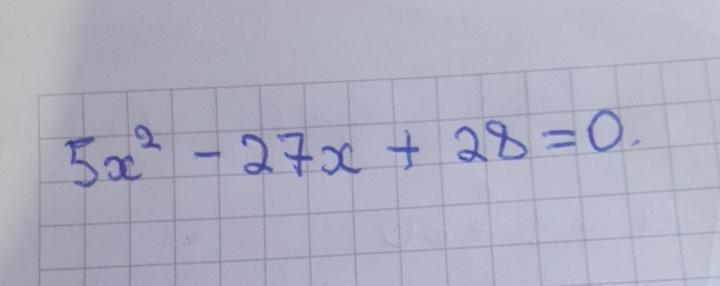 5x² - 27x + 28 = 0.